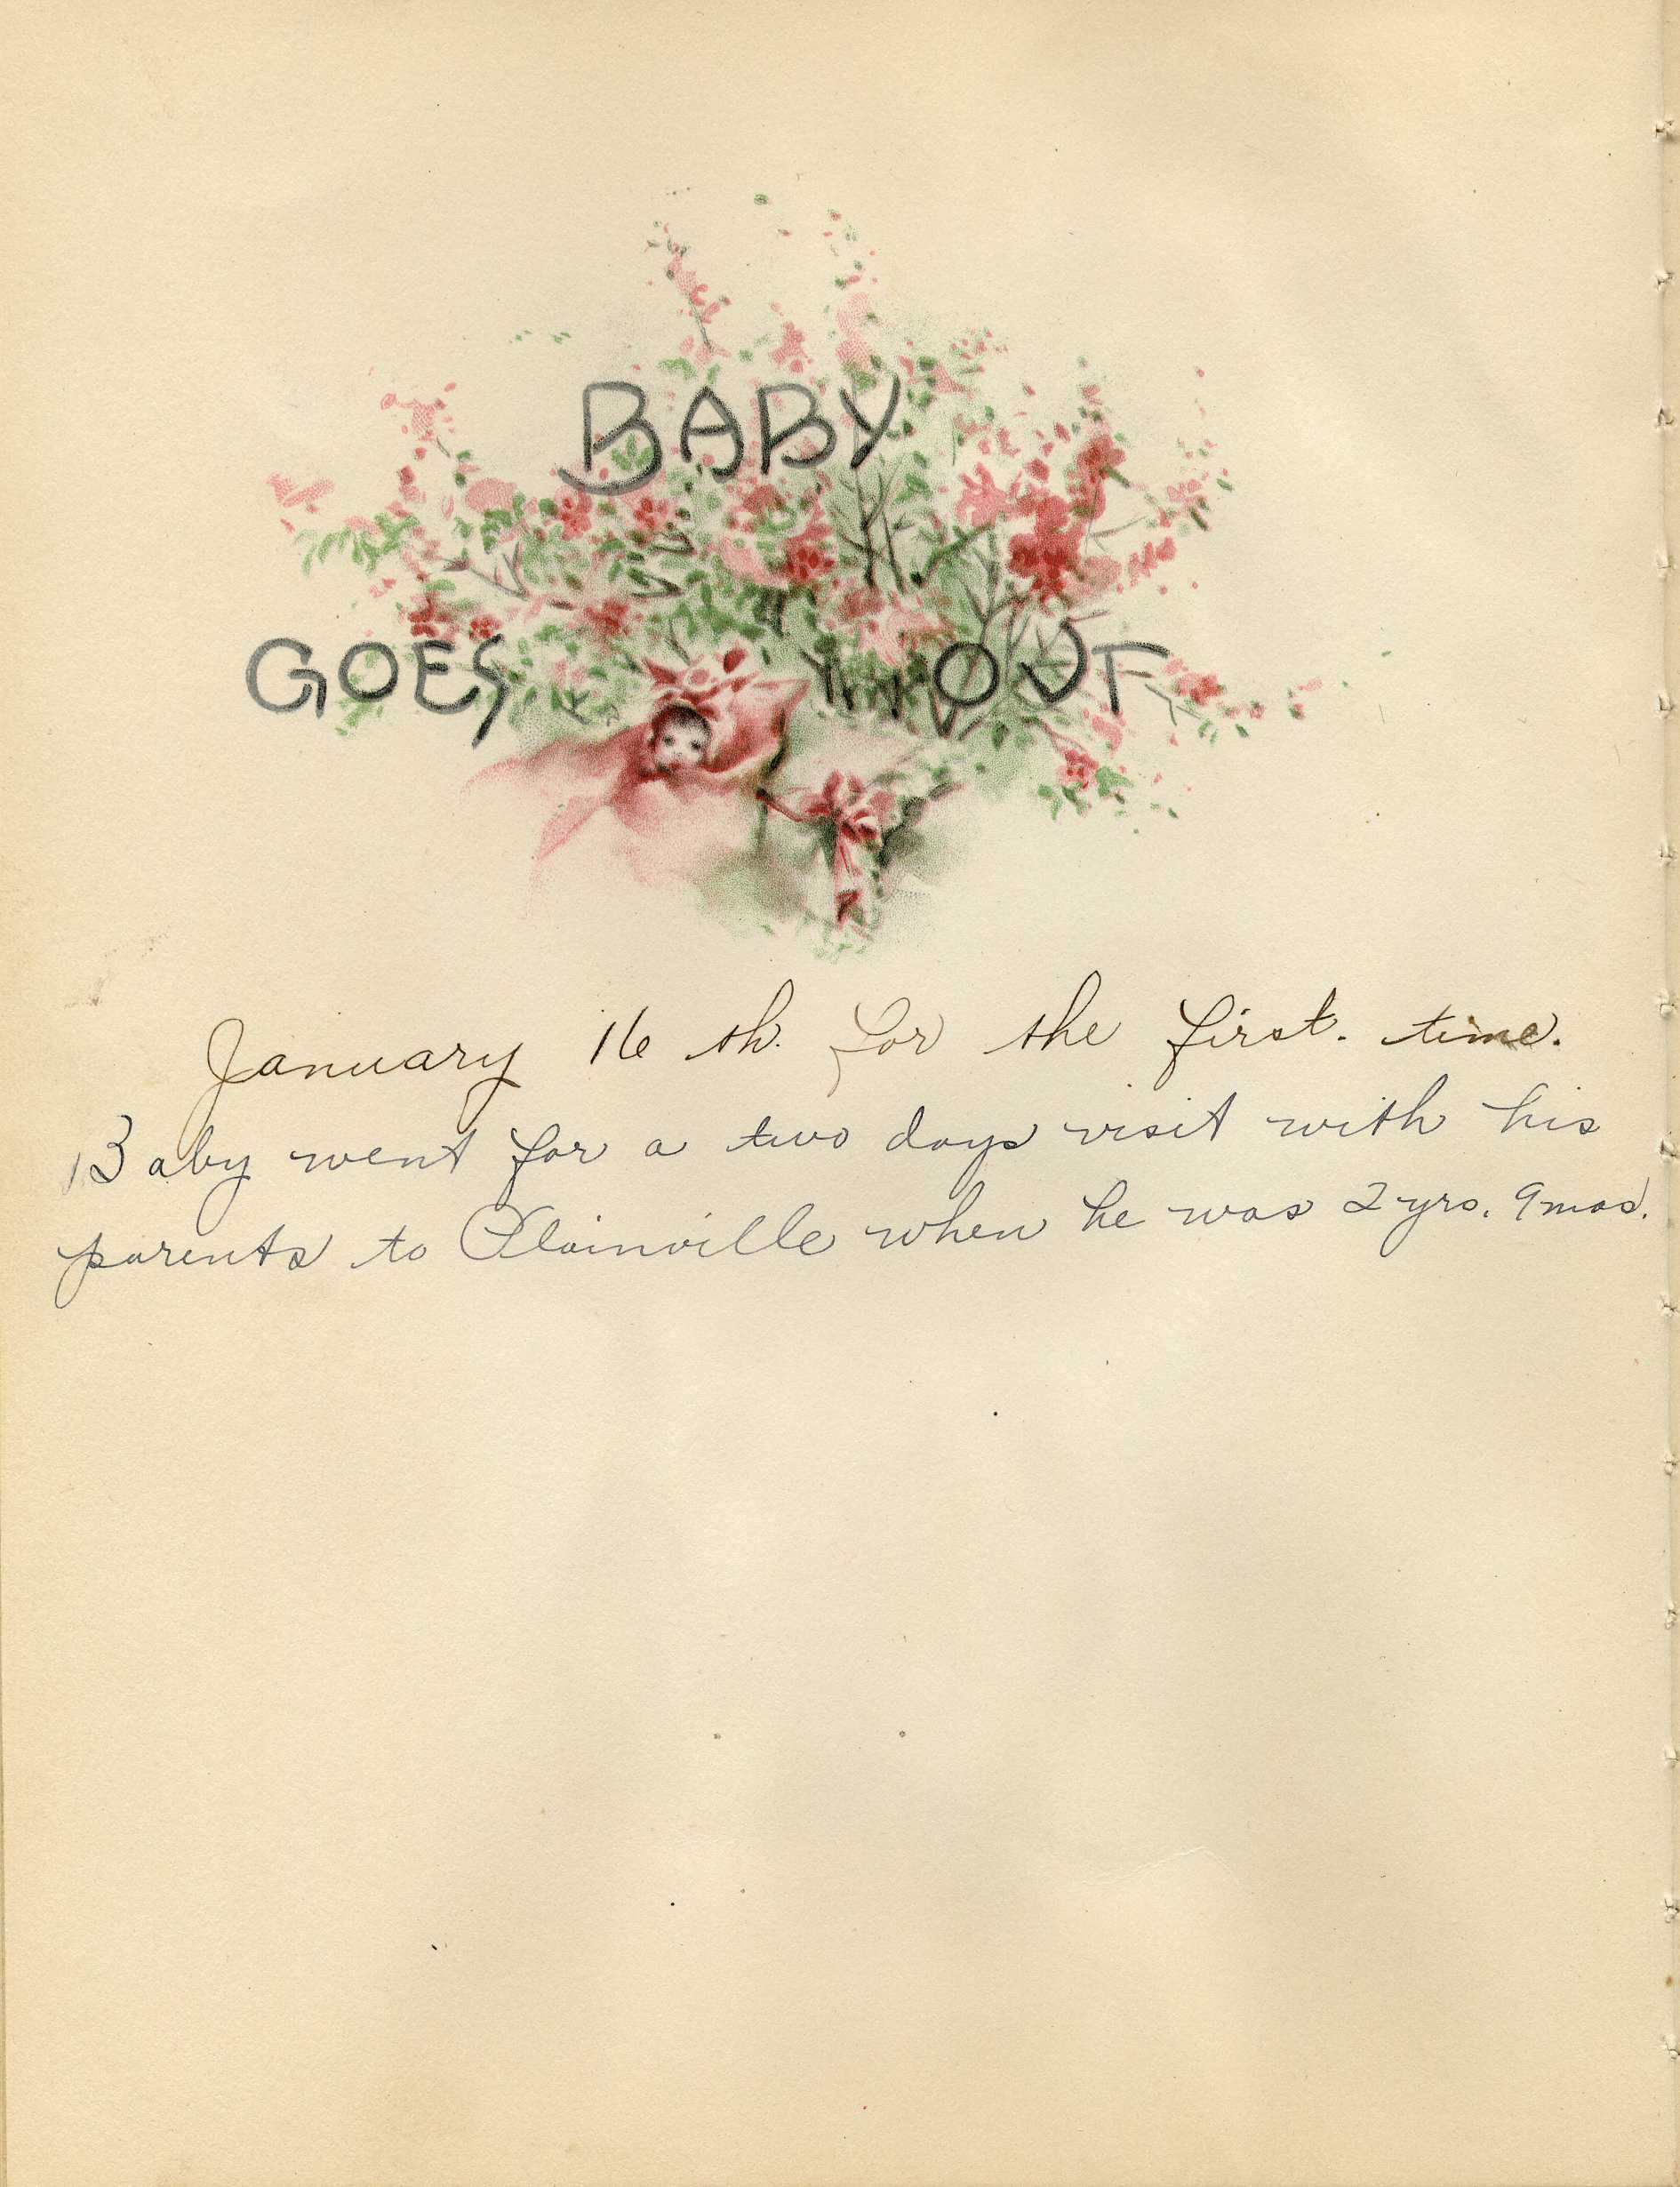 BABY
GOES OUT
January 16 th. for the first. time.
Baby went for a two days visit with his
parents to Plainville when he was 2 yrs. 9 mos.